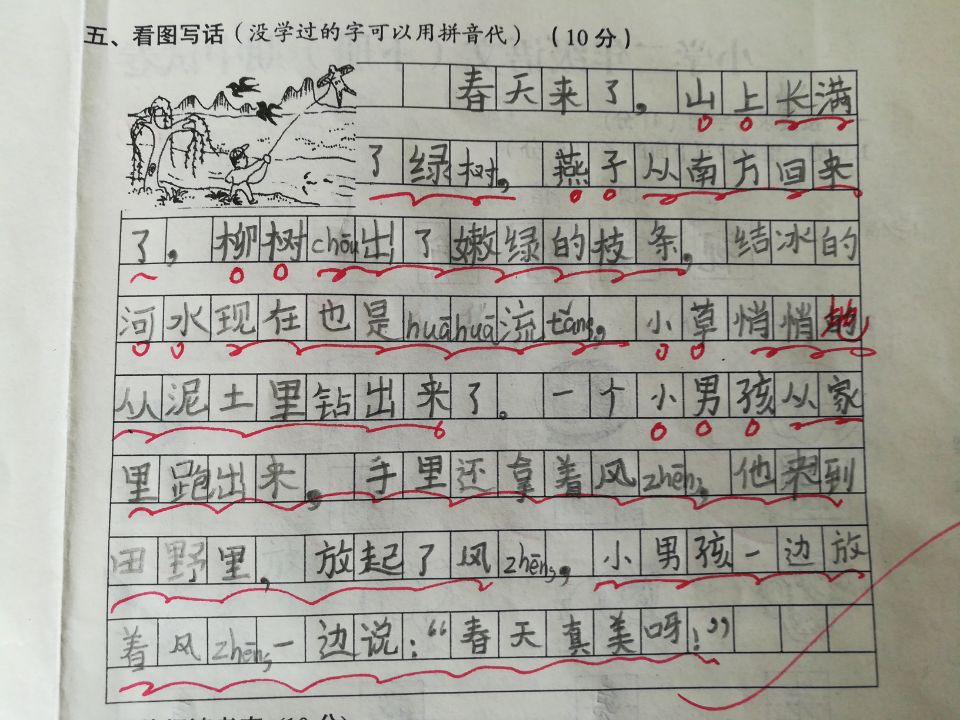 五、看图写话（没学过的字可以用拼音代）（10分）
春天来了，山上长满
了绿树，燕子从南方回来
了，柳树chōu出了嫩绿的枝条，结冰的
河水现在也是huāhuā流tǎng，小草悄悄地
从泥土里钻出来了。一个小男孩从家
里跑出来，手里还拿着风zhēng，他来到
田野里，放起了风zhēng，小男孩一边放
着风zhēng一边说：“春天真美呀！”